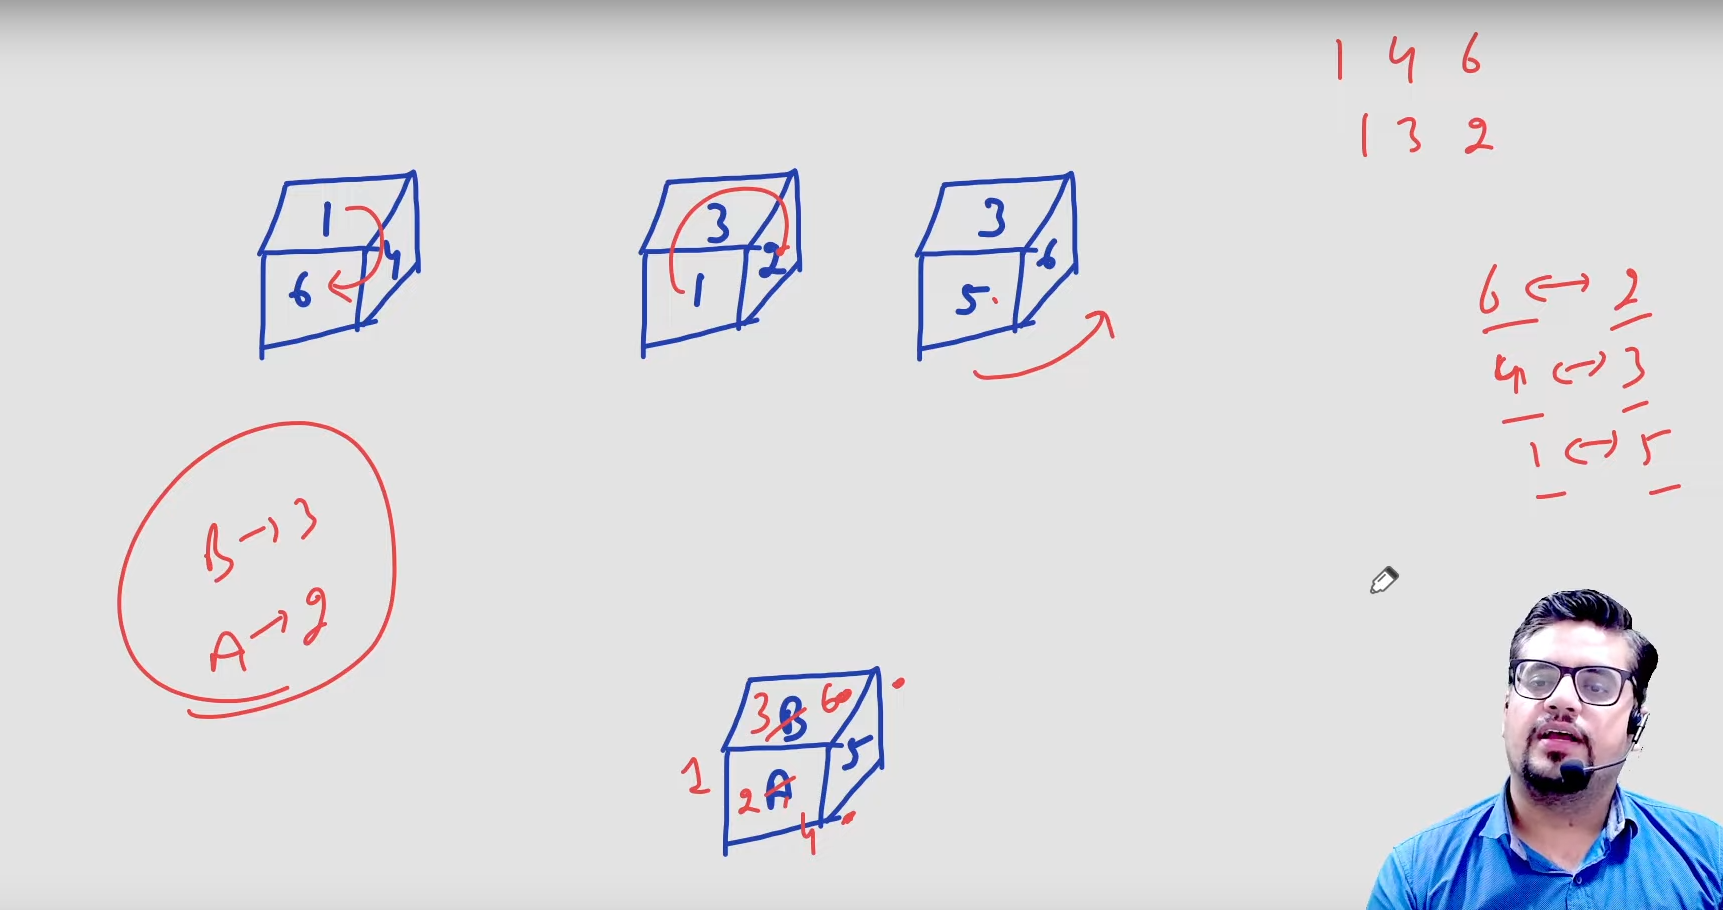 1 4 6
1 3 2
1
6 4
3
1 2
3
5 6
6 ↔ 2
4 ↔ 3
1 ↔ 5
B → 3
A → 2
3 B 6
1 2 A 5
4